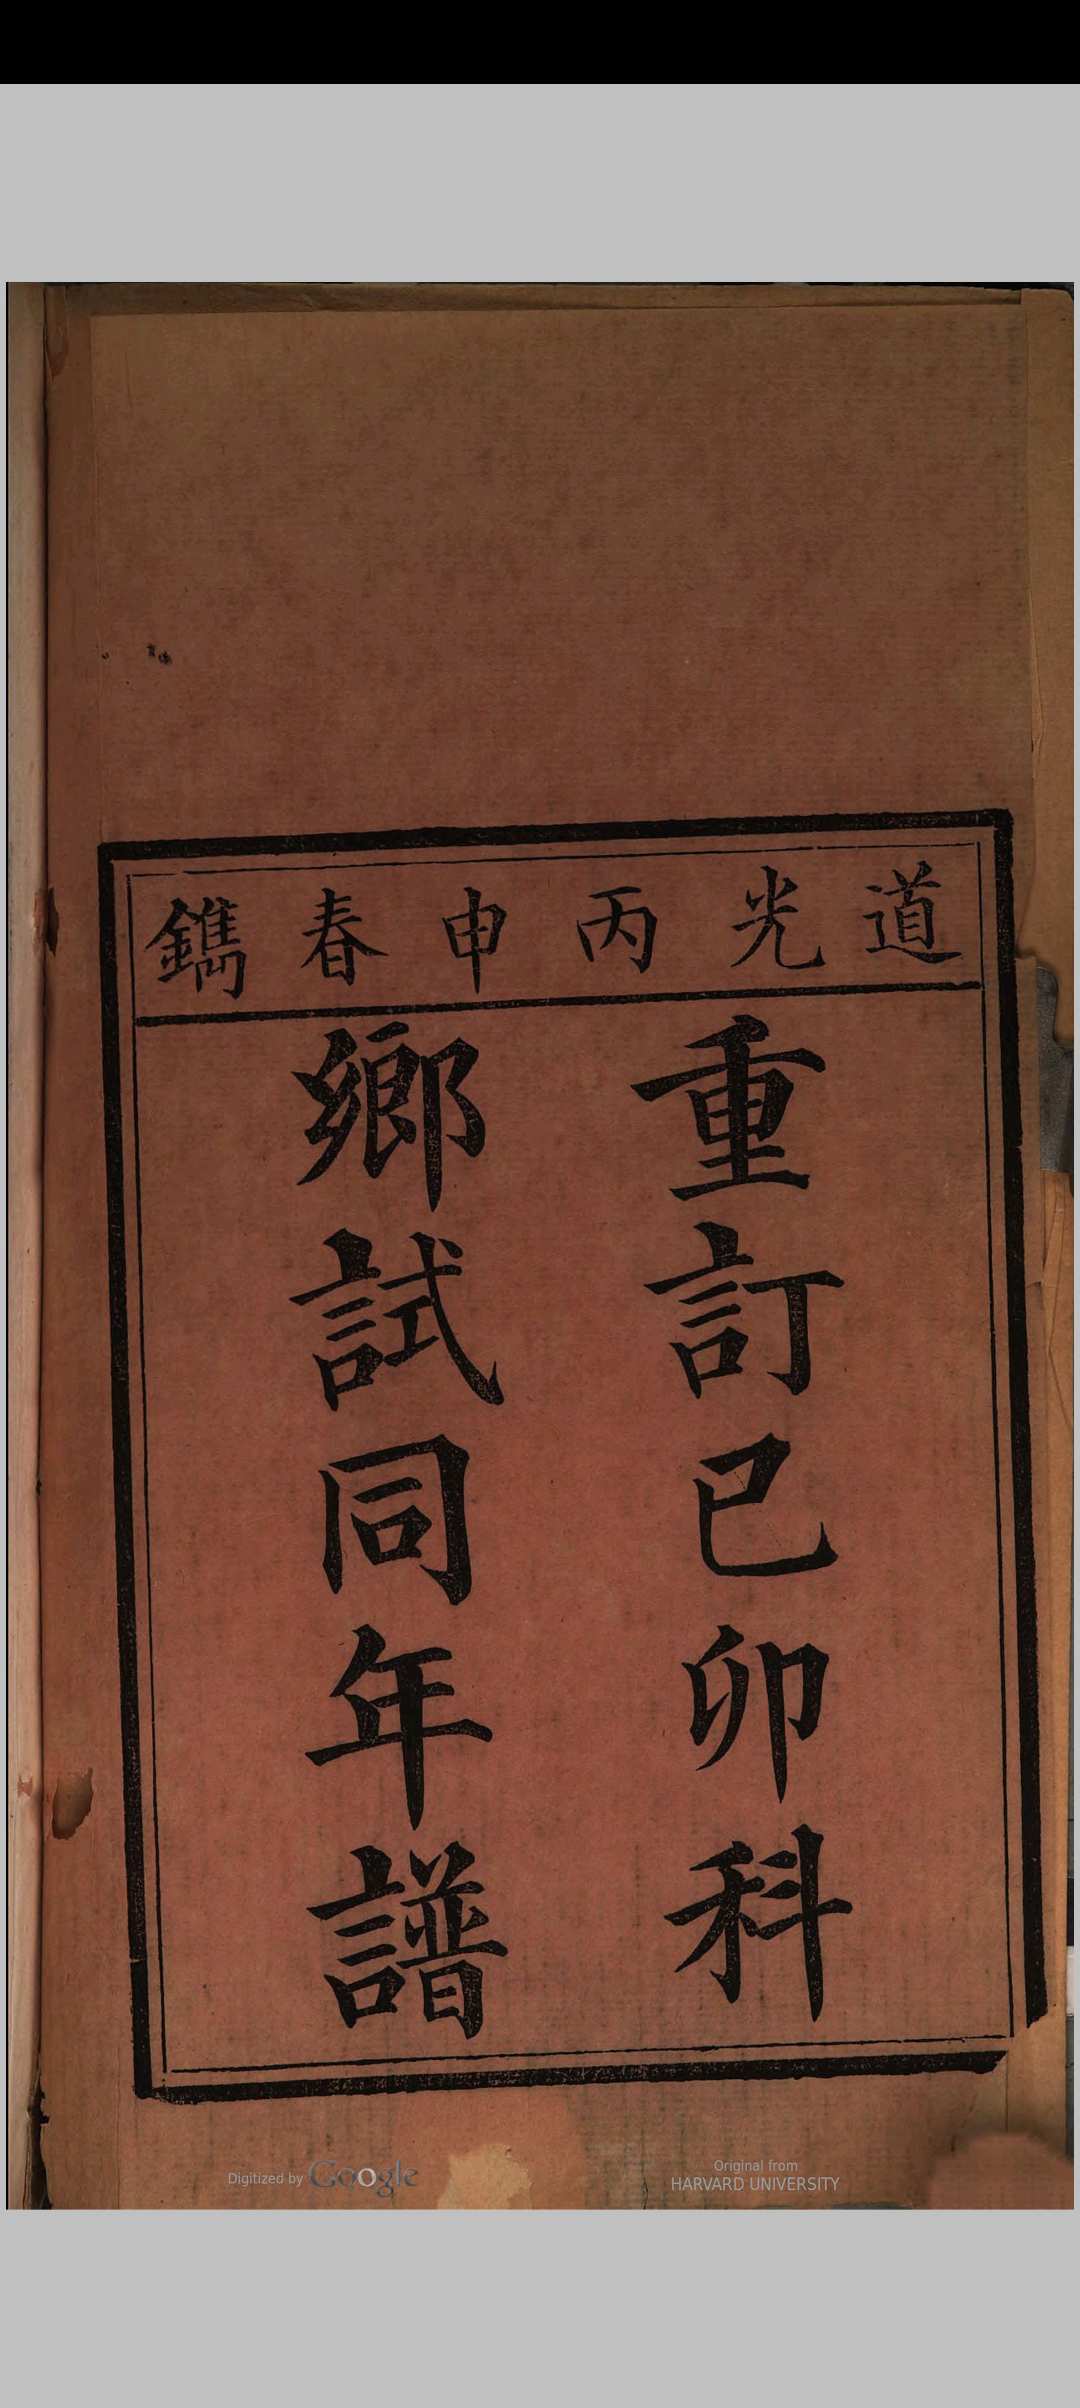 道光丙申春鐫
重訂已卯科
鄉試同年譜
Digitized by Google
Original from
HARVARD UNIVERSITY